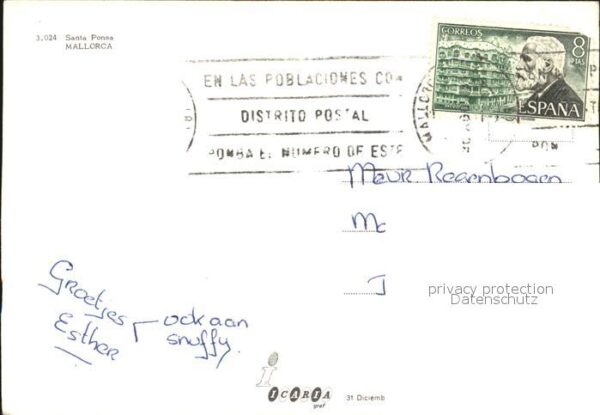 3,024 Santa Ponsa
MALLORCA
CORREOS
8
PTAS
ESPAÑA
EN LAS POBLACIONES CON
DISTRITO POSTAL
PONGA EL NUMERO DE ESTE
MALLOR
PON
Mevr Regenbogen
Mc
J
privacy protection
Datenschutz
Groetjes
Esther
ook aan
snuffy.
ICARIA
graf
31 Diciemb